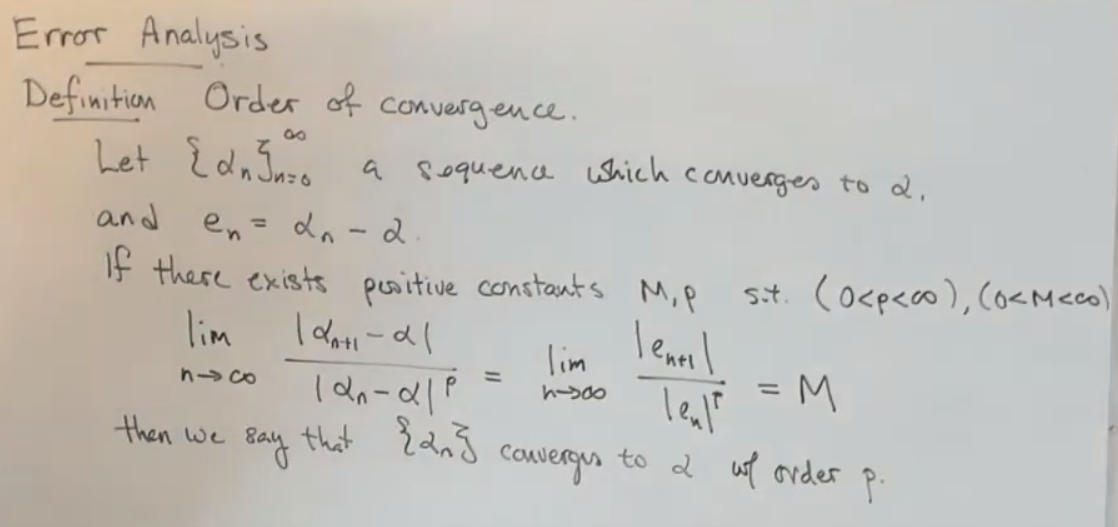 Error Analysis
Definition Order of convergence.
Let {αₙ}ₙ₌₀^∞ a sequence which converges to α,
and eₙ = αₙ - α.
If there exists positive constants M, p s.t. (0<p<∞), (0<M<∞)
lim n→∞ |αₙ₊₁ - α| / |αₙ - α|^p = lim n→∞ |eₙ₊₁| / |eₙ|^p = M
then we say that {αₙ} converges to α w/ order p.